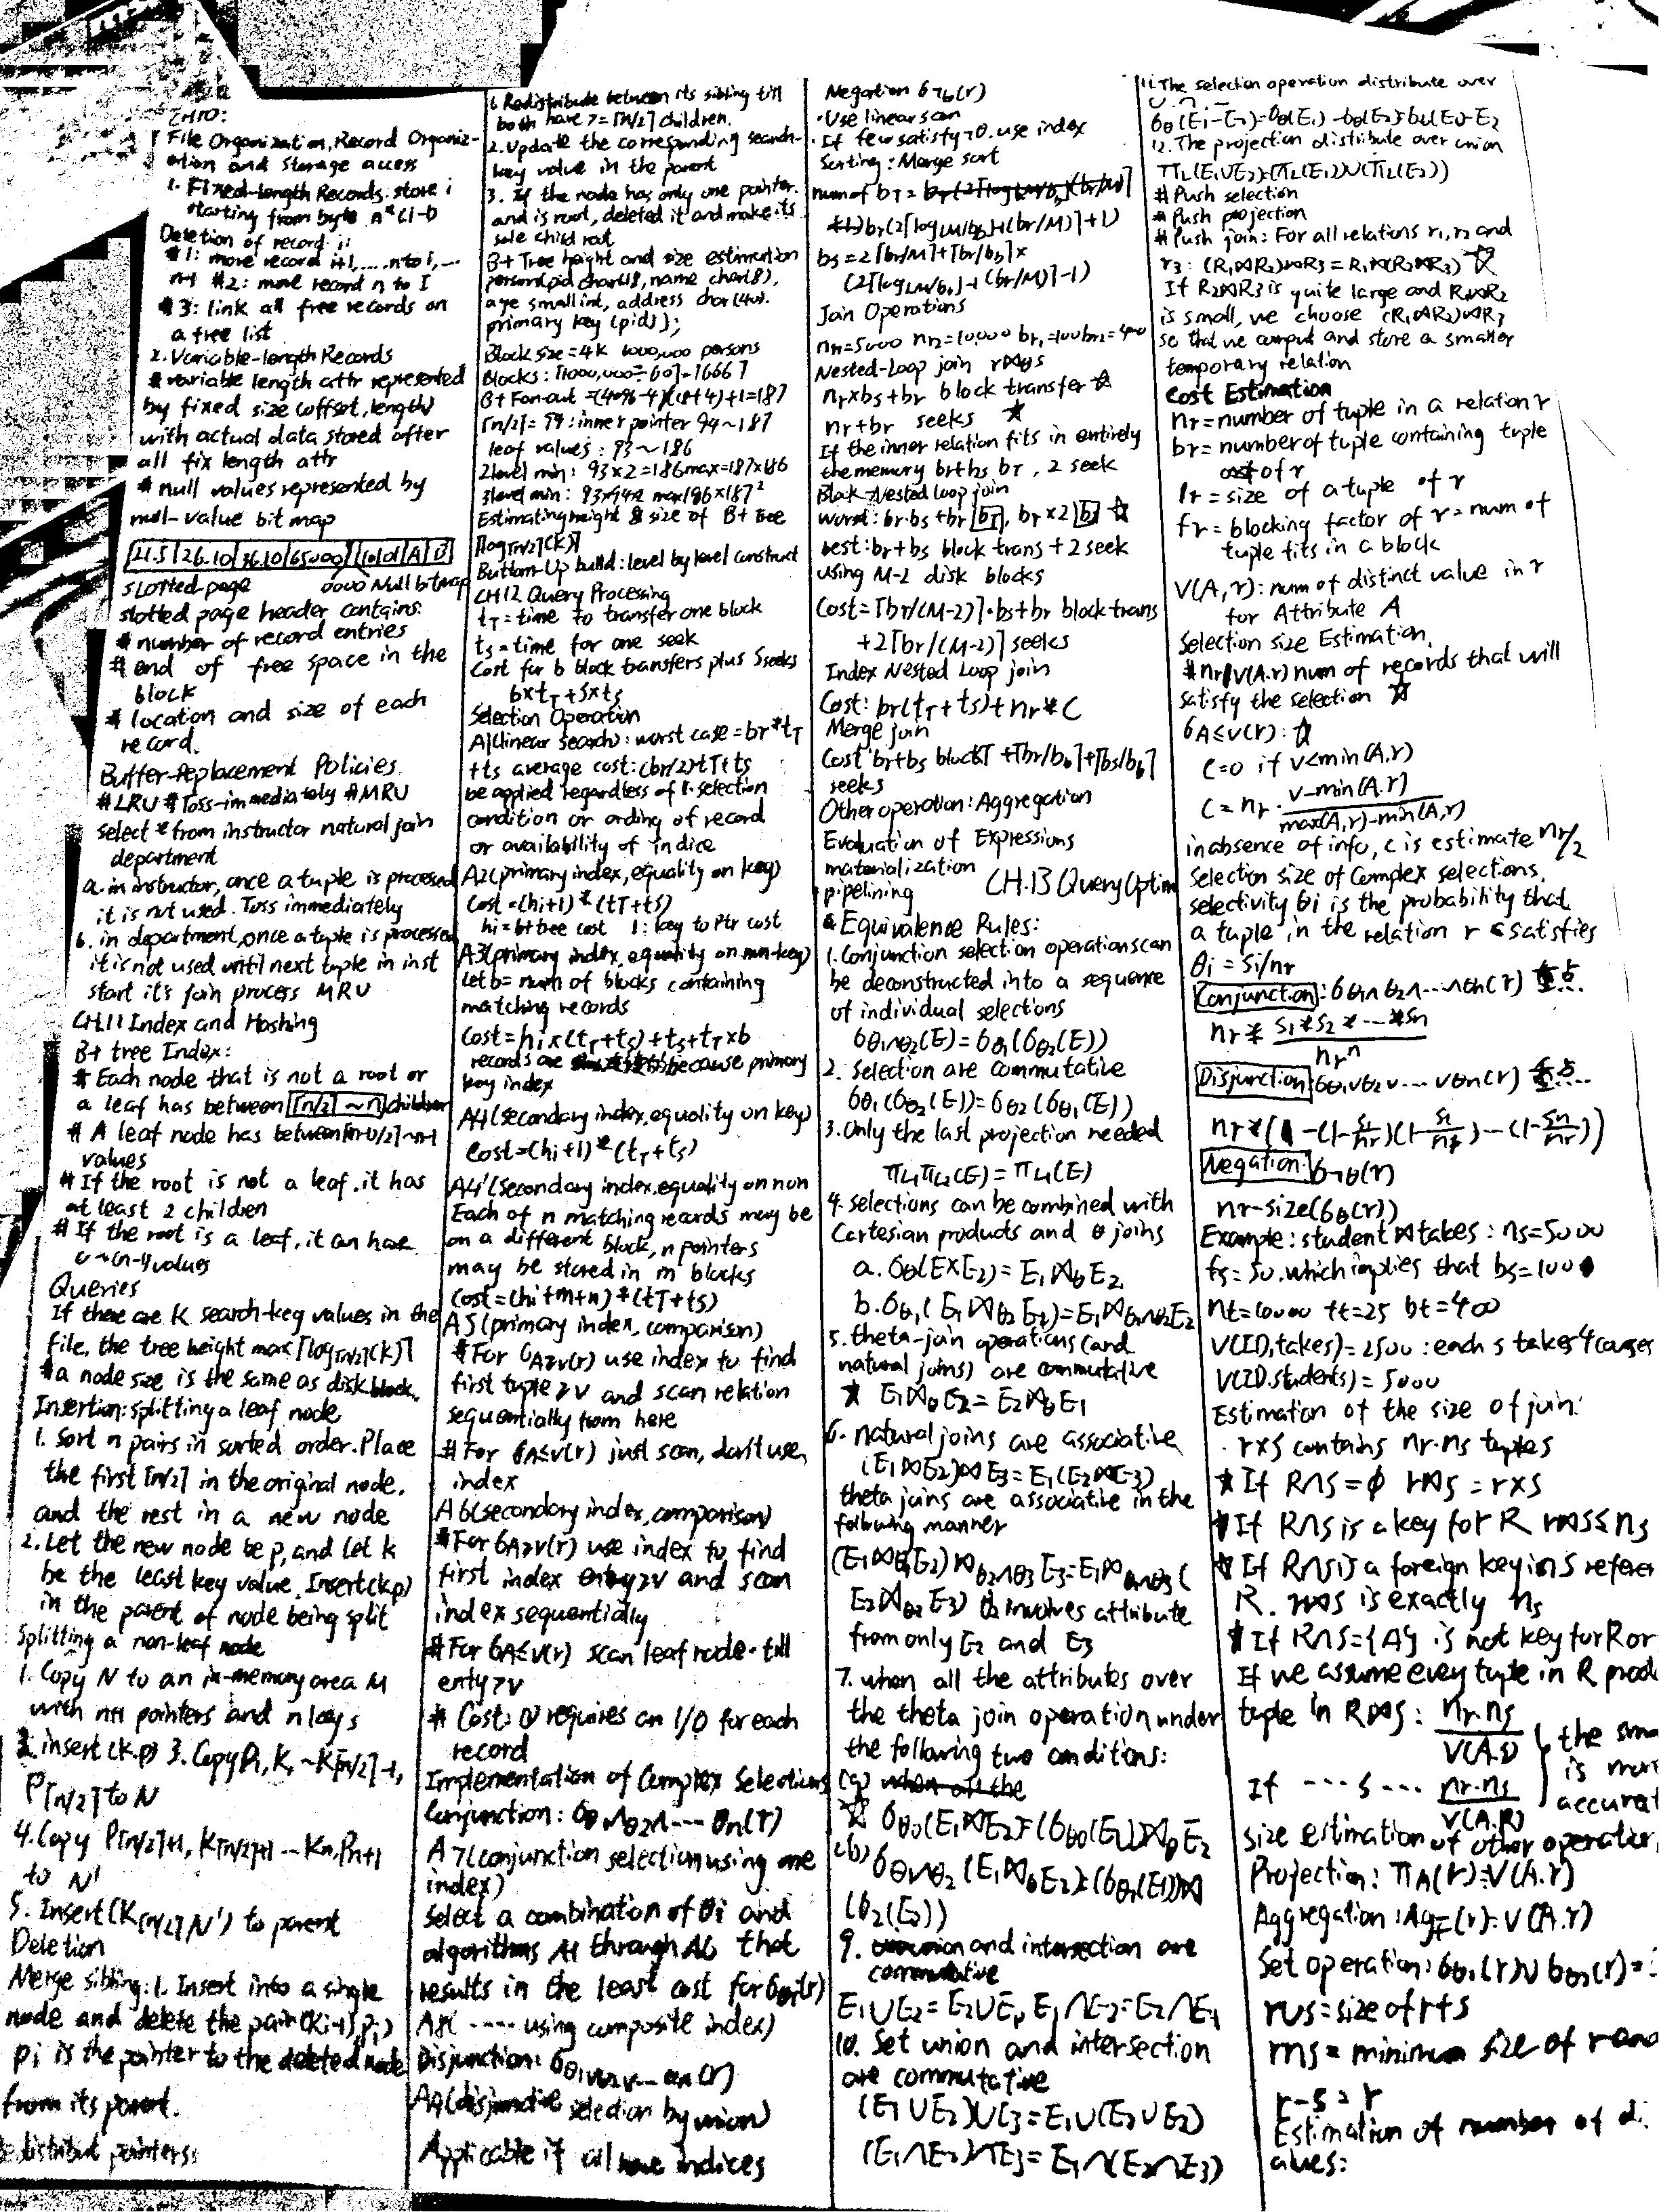 CH10:
File Organization, Record Organiz-
ation and Storage access
1. Fixed-length Records: store i
starting from byte n*(i-1)
Deletion of record i:
#1: move record i+1, .... n to i, ...
n-1 #2: move record n to I
#3: link all free records on
a free list
2. Variable-length Records
# variable length attr represented
by fixed size (offset, length)
with actual data stored after
all fix length attr
# null values represented by
null-value bit map
21.5|26.10|36.10|65000| |10101|A|B
slotted page 0000 Null bitmap
slotted page header contains:
# number of record entries
# end of free space in the
block
# location and size of each
record.
Buffer-Replacement Policies
#LRU #Toss-immediately #MRU
select * from instructor natural join
department
a. in instructor, once a tuple is processed
it is not used. Toss immediately
b. in department, once a tuple is processed
it is not used until next tuple in inst
start it's join process MRU
CH.11 Index and Hashing
B+ tree Index:
# Each node that is not a root or
a leaf has between ⌈n/2⌉ ~ n children
# A leaf node has between ⌈(n-1)/2⌉~n-1
values
# If the root is not a leaf, it has
at least 2 children
# If the root is a leaf, it can have
0~(n-1) values
Queries
If there are K search-key values in the
file, the tree height max ⌈log⌈n/2⌉(K)⌉
# a node size is the same as disk block.
Insertion: splitting a leaf node
1. Sort n pairs in sorted order. Place
the first ⌈n/2⌉ in the original node.
and the rest in a new node
2. Let the new node be p, and let k
be the least key value. Insert (k,p)
in the parent of node being split
Splitting a non-leaf node
1. Copy N to an in-memory area M
with n+1 pointers and n keys
2. insert (k.p) 3. Copy P1, K1 ~K⌈n/2⌉-1,
P⌈n/2⌉ to N
4. Copy P⌈n/2⌉+1, K⌈n/2⌉+1 ... Kn, Pn+1
to N'
5. Insert (K⌈n/2⌉, N') to parent
Deletion
Merge sibling: 1. Insert into a single
node and delete the pair (Ki-1, Pi)
Pi is the pointer to the deleted node
from its parent.
distribut pointers:
1. Redistribute between its sibling till
both have >= ⌈n/2⌉ children.
2. Update the corresponding search-
key value in the parent
3. If the node has only one pointer.
and is root, deleted it and make its
sole child root
B+ Tree height and size estimation
person(pid char(18, name char(8),
age smallint, address char(40),
primary key (pid));
Block size = 4K 1000,000 persons
Blocks: ⌈1000,000÷60⌉=16667
B+ Fan-out =(4096-4)/(18+4)+1=187
⌈n/2⌉= 94: inner pointer 94~187
leaf values: 93~186
2level min: 93×2=186 max=187×186
3level min: 93×94×2 max 186×187²
Estimating height & size of B+ Tree
⌈log⌈n/2⌉(K)⌉
Buttom-Up build: level by level construct
CH12 Query Processing
tT = time to transfer one block
ts = time for one seek
Cost for b block transfers plus S seeks
b×tT+S×ts
Selection Operation
A1(linear search): worst case = br*tT
+ts average cost: (br/2)tT+ts
be applied regardless of 1. selection
condition or ording of record
or availability of indice
A2(primary index, equality on key)
Cost=(hi+1)*(tT+ts)
hi=b+tree cost 1: key to Ptr cost
A3(primary index, equality on non-key)
Let b= num of blocks containing
matching records
Cost=hi×(tT+ts)+ts+tT×b
records are because primary
key index
A4(secondary index, equality on key)
Cost=(hi+1)*(tT+ts)
A4'(secondary index, equality on non
Each of n matching records may be
on a different block, n pointers
may be stored in m blocks
Cost=(hi+m+n)*(tT+ts)
A5(primary index, comparison)
#For σA≥v(r) use index to find
first tuple ≥v and scan relation
sequentially from here
#For σA≤v(r) just scan, don't use
index
A6(secondary index, comparison)
#For σA≥v(r) use index to find
first index entry≥v and scan
index sequentially
#For σA≤v(r) scan leaf node till
enty>v
# Cost: requires an I/O for each
record
Implementation of Complex Selections
Conjunction: σθ1∧θ2∧...θn(r)
A7(conjunction selection using one
index)
Select a combination of θi and
algorithms A1 through A6 that
results in the least cost for σθi(r)
A8( .... using composite index)
Disjunction: σθ1∨θ2∨...θn(r)
A9(disjunctive selection by union)
Applicable if all have indices
Negation σ¬θ(r)
·Use linear scan
·If few satisfy ¬θ, use index
Sorting: Merge sort
num of bT =
br(2⌈logM/bb⌉(br/M)⌉+1)
bs=2⌈br/M⌉+⌈br/bb⌉×
(2⌈logM/bb⌉(br/M)⌉-1)
Join Operations
nr1=5000 nr2=10,000 br1=100 br2=400
Nested-Loop join r⋈θs
nr×bs+br block transfer ☆
nr+br seeks ☆
If the inner relation fits in entirely
the memory br+bs bT, 2 seek
Block Nested loop join
worst: br·bs+br bT, br×2 bs ☆
best: br+bs block trans + 2 seek
using M-2 disk blocks
Cost=⌈br/(M-2)⌉·bs+br block trans
+2⌈br/(M-2)⌉ seeks
Index Nested Loop join
Cost: br(tT+ts)+nr*C
Merge join
Cost br+bs blockT +⌈br/bb⌉+⌈bs/bb⌉
seeks
Other operation: Aggregation
Evaluation of Expressions
materialization
pipelining CH.13 Query Optim
# Equivalence Rules:
1. Conjunction selection operation scan
be deconstructed into a sequence
of individual selections
σθ1∧θ2(E)=σθ1(σθ2(E))
2. Selection are commutative
σθ1(σθ2(E))=σθ2(σθ1(E))
3. Only the last projection needed
πL1πL2(E)=πL1(E)
4. selections can be combined with
Cartesian products and θ joins
a. σθ(E×E2)=E1⋈θE2
b. σθ1(E1⋈θ2E2)=E1⋈θ1∧θ2E2
5. theta-join operations (and
natural joins) are commutative
* E1⋈θE2=E2⋈θE1
6. natural joins are associative
(E1⋈E2)⋈E3=E1(E2⋈E3)
theta joins are associative in the
following manner
(E1⋈θ1E2)⋈θ2∧θ3E3=E1⋈θ1∧θ3(
E2⋈θ2E3) θ2 involves attribute
from only E2 and E3
7. when all the attributes over
the theta join operation under
the following two conditions:
(a) when all the
☆ σθ0(E1⋈E2)=(σθ0(E1))⋈θE2
(b) σθ1∧θ2(E1⋈θE2)=(σθ1(E1))⋈
(θ2(E2))
9. union and intersection are
commutative
E1∪E2=E2∪E1, E1∩E2=E2∩E1
10. Set union and intersection
are commutative
(E1∪E2)∪E3=E1∪(E2∪E2)
(E1∩E2)∩E3=E1∩(E2∩E3)
11. The selection operation distribute over
∪, ∩, -
σθ(E1-E2)=σθ(E1)-σθ(E2)=σθ(E1)-E2
12. The projection distribute over union
πL(E1∪E2)=(πL(E1))∪(πL(E2))
# Push selection
# Push projection
# Push join: For all relations r1, r2 and
r3: (R1⋈R2)⋈R3=R1⋈(R2⋈R3) ☆
If R2⋈R3 is quite large and R1⋈R2
is small, we choose (R1⋈R2)⋈R3
so that we comput and store a smaller
temporary relation
Cost Estimation
nr=number of tuple in a relation r
br=number of tuple containing tuple
of r
lr=size of a tuple of r
fr=blocking factor of r=num of
tuple fits in a block
V(A,r): num of distinct value in r
for Attribute A
Selection size Estimation.
#nr/V(A.r) num of records that will
satisfy the selection ☆
σA≤v(r): ☆
C=0 if v<min(A,r)
C=nr· v-min(A.r) / max(A,r)-min(A,r)
in absence of info, c is estimate nr/2
Selection size of Complex selections.
selectivity θi is the probability that
a tuple in the relation r satisfies
θi = Si/nr
Conjunction: σθ1∧θ2∧...∧θn(r)
nr* S1*S2*...*Sn / nr^n
Disjunction: σθ1∨θ2∨...∨θn(r)
nr*(1-(1-S1/nr)(1-S1/nr)...(1-Sn/nr))
Negation: σ¬θ(r)
nr-size(σθ(r))
Example: student ⋈ takes: ns=5000
fs=50, which implies that bs=100
nt=10000 ft=25 bt=400
V(ID,takes)=2500: each s takes 4 courses
V(ID.students)=5000
Estimation of the size of join:
· r×s contains nr·ns tuples
* If R∩S=φ r⋈s=r×s
* If R∩S is a key for R r⋈s≤ns
* If R∩S is a foreign key in S referen
R. r⋈s is exactly ns
* If R∩S={A} is not key for R or
If we assume every tuple in R prod
tuple in R⋈S: nr.ns / V(A.s) } the sma
is more
accurat
If ...s... nr.ns / V(A.R)
size estimation of other operation
Projection: πA(r)=V(A.r)
Aggregation: AgF(r)=V(A.r)
Set operation: σθ1(r)∪σθ2(r)=
r∪s=size of r+s
r∩s=minimum size of r and
r-s=r
Estimation of number of di
alues: